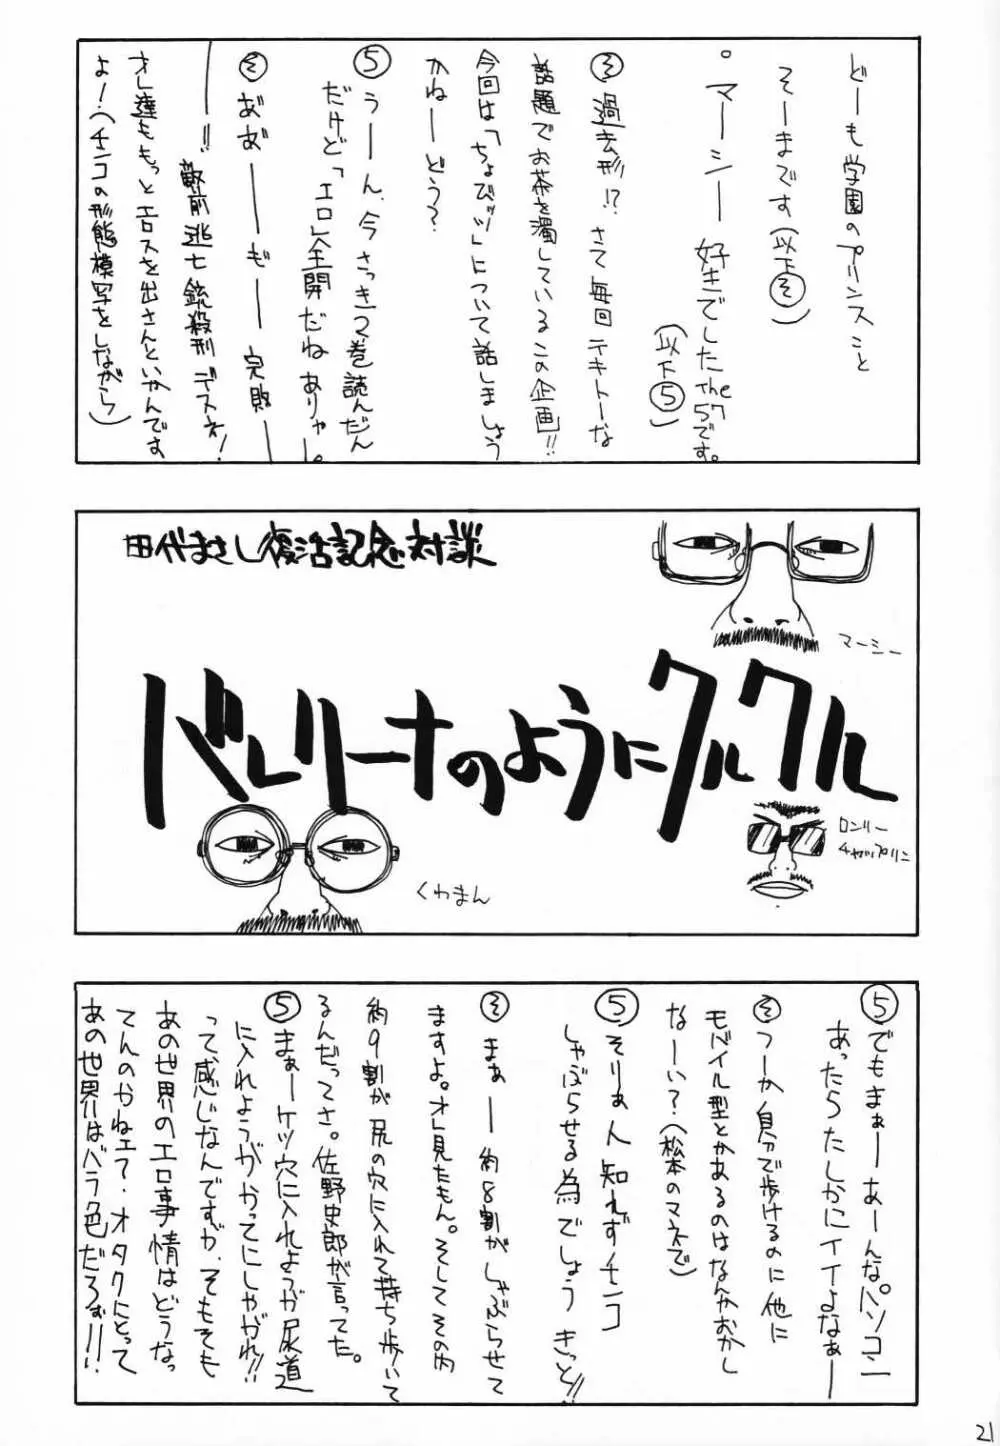 どーも学園のプリンスこと
そーまです(以下そ)
・マーシー好きでしたThe57です。
(以下5)
そ 過去形!?さて毎回テキトーな
話題でお茶を濁しているこの企画!!
今回は「ちょびッツ」について話しましょう
かねーどう?
5 うーん、今さっき1、2巻読んだん
だけど「エロ」全開だねありゃー。
そ あ゛あ゛ーーも゛ーー 完敗ー
ー!! 敵前逃亡銃殺刑デスネ!
オレ達ももっとエロスを出さんといかんです
よ!(チンコの形態模写をしながら)
田代まさし復活記念対談
マーシー
バレリーナのようにクルクル
ロンリー
チャップリン
くわまん
5 でもまぁーあーんな。パソコン
あったらたしかにイイよなぁー
そ つーか自分で歩けるのに他に
モバイル型とかあるのはなんかおかし
なーい?(松本のマネで)
5 そりぁ人知れずチンコ
しゃぶらせる為でしょう きっと!!
そ まぁー約8割がしゃぶらせて
ますよ。オレ見たもん。そしてその内
約9割が尻の穴に入れて持ち歩いて
るんだってさ。佐野史郎が言ってた。
5 まぁーケツ穴に入れようが尿道
に入れようがかってにしやがれ!!
って、感じなんですが、そもそも
あの世界のエロ事情はどうなっ
てんのかねェ?・オタクにとって
あの世界はバラ色だろぉーー!!
21